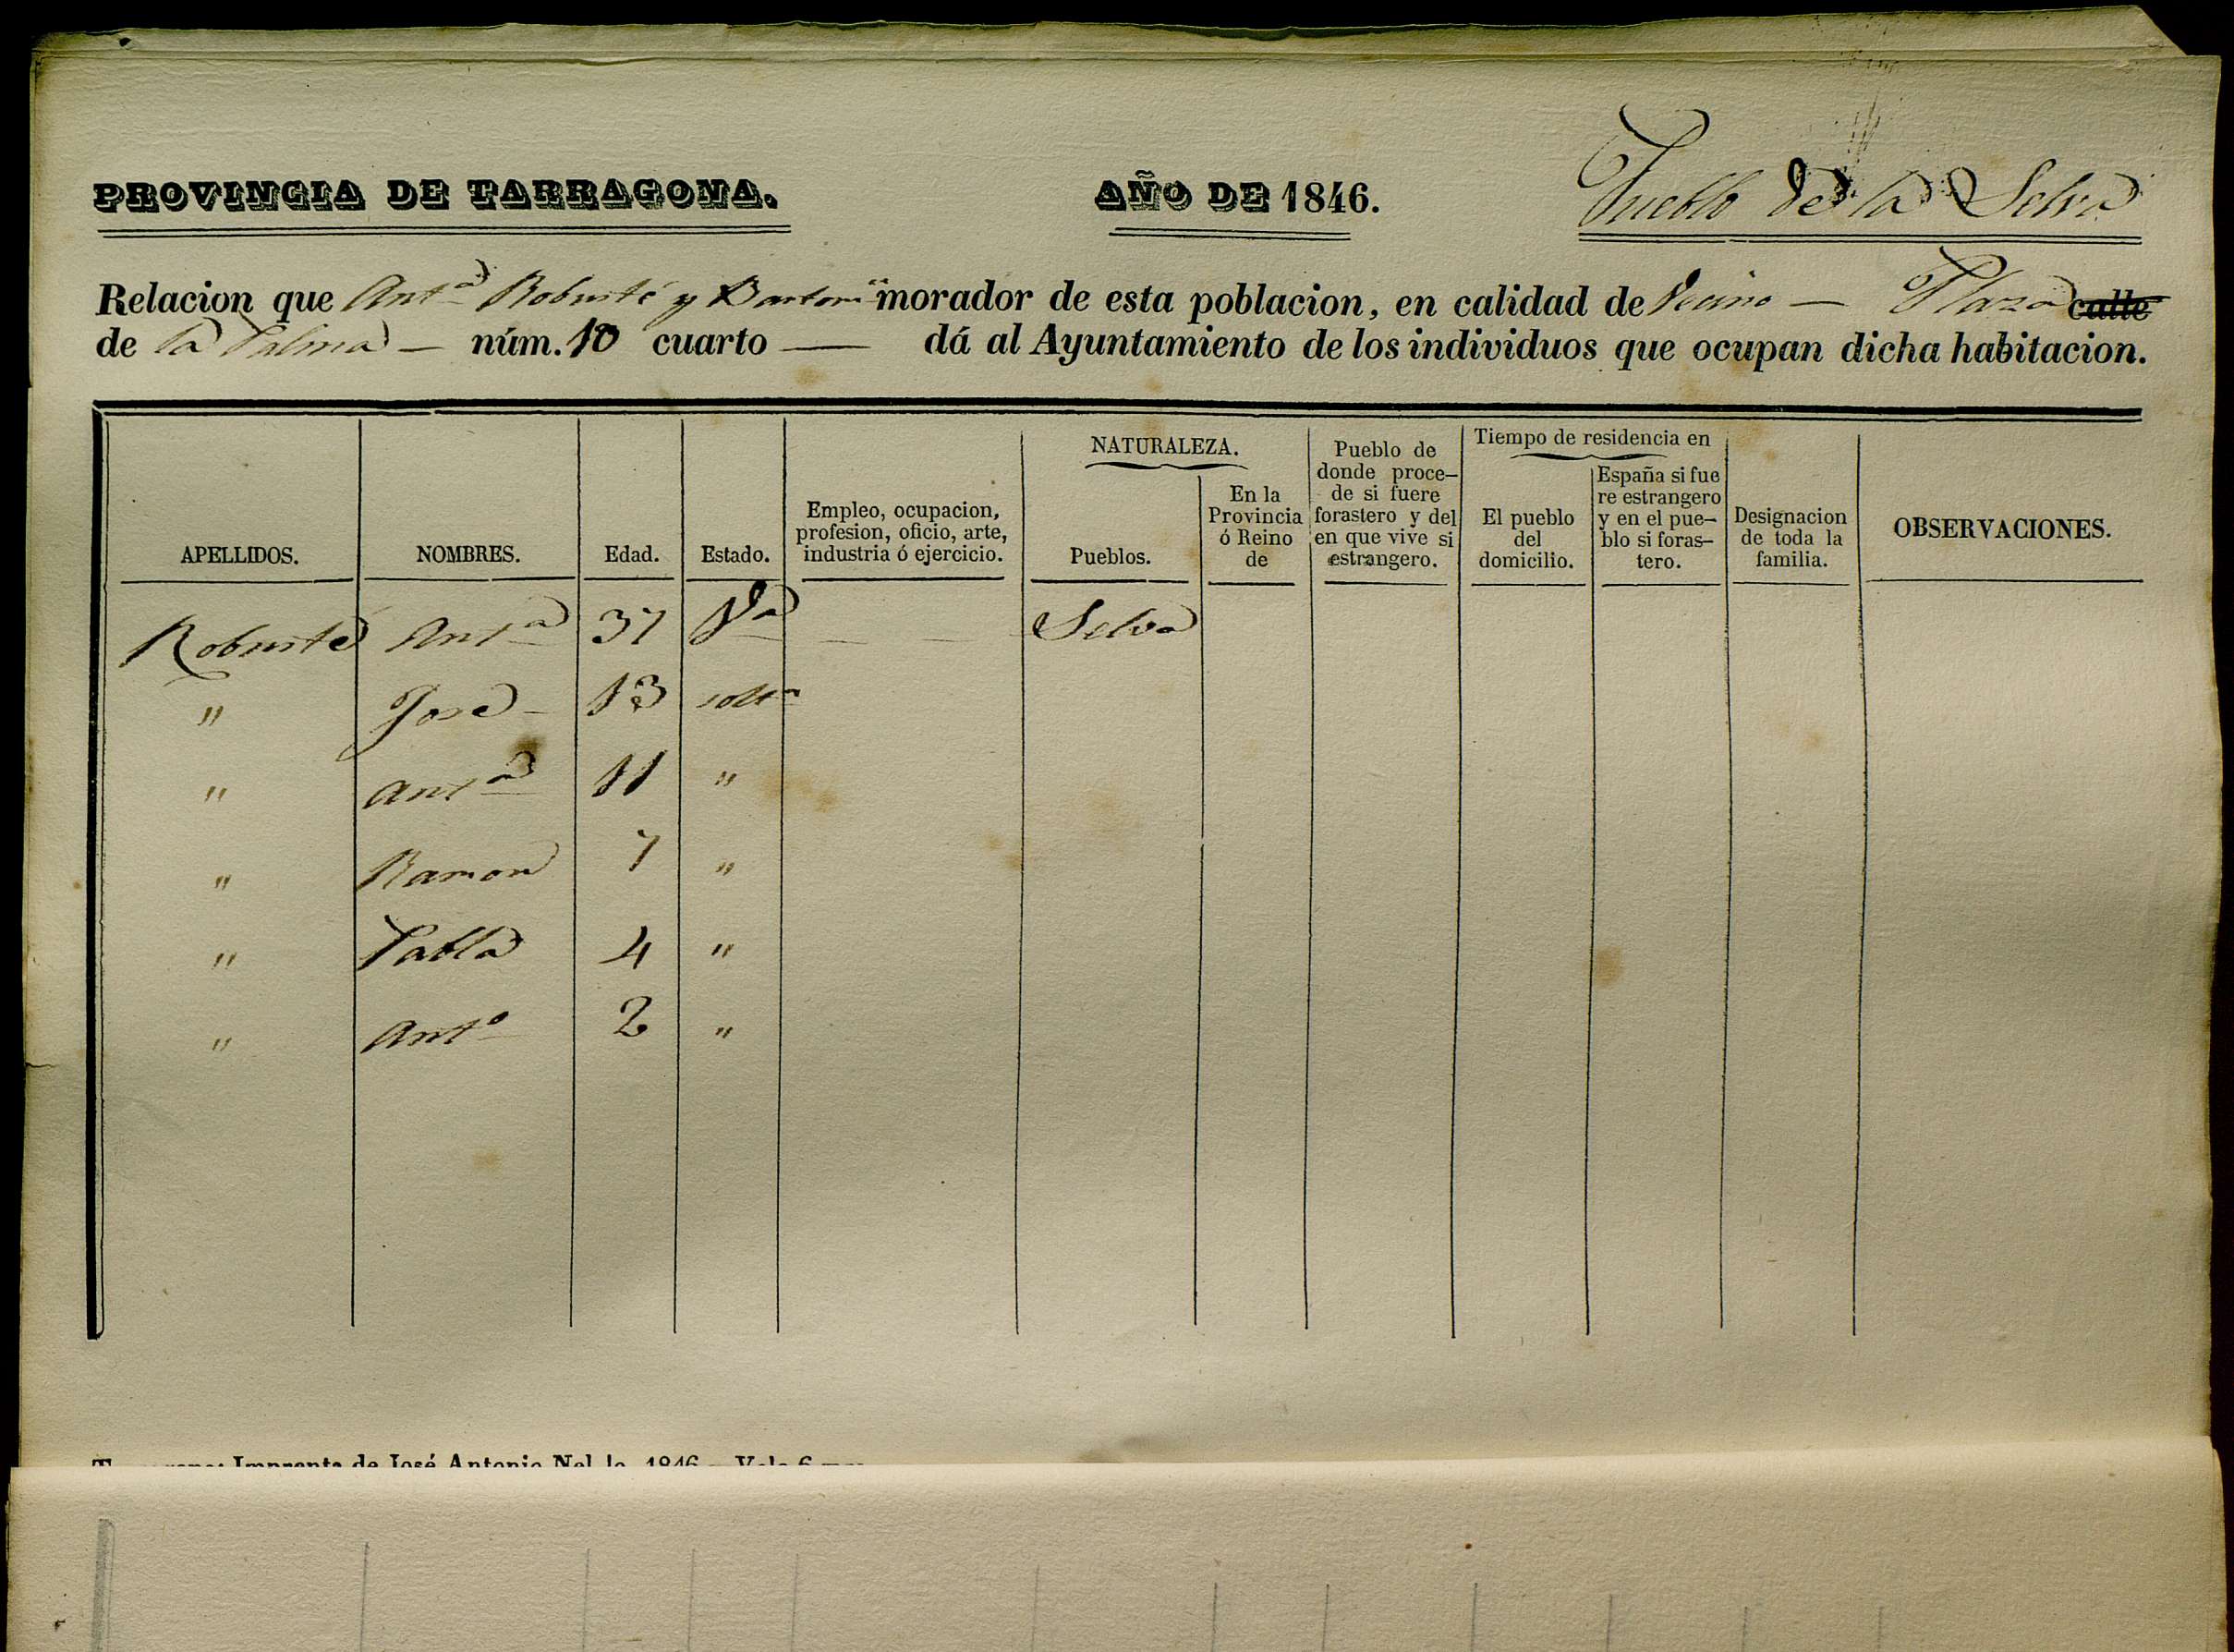 PROVINCIA DE TARRAGONA. AÑO DE 1846. Pueblo de la Selva
Relacion que Antª Robusté y morador de esta poblacion, en calidad de Vecino — Plaza calle
de la Palma — núm. 10 cuarto — dá al Ayuntamiento de los individuos que ocupan dicha habitacion.
APELLIDOS. NOMBRES. Edad. Estado. Empleo, ocupacion, profesion, oficio, arte, industria ó ejercicio. NATURALEZA. Pueblos. En la Provincia ó Reino de Pueblo de donde proce- de si fuere forastero y del en que vive si estrangero. Tiempo de residencia en El pueblo del domicilio. España si fue re estrangero y en el pue- blo si foras- tero. Designacion de toda la familia. OBSERVACIONES.
Robusté Antª 37 Vª — — Selva
" José — 13 soltº
" Antª 11 "
" Ramon 7 "
" Pabla 4 "
" Antº 2 "
Imprenta de José Antonio Nel lo 1846